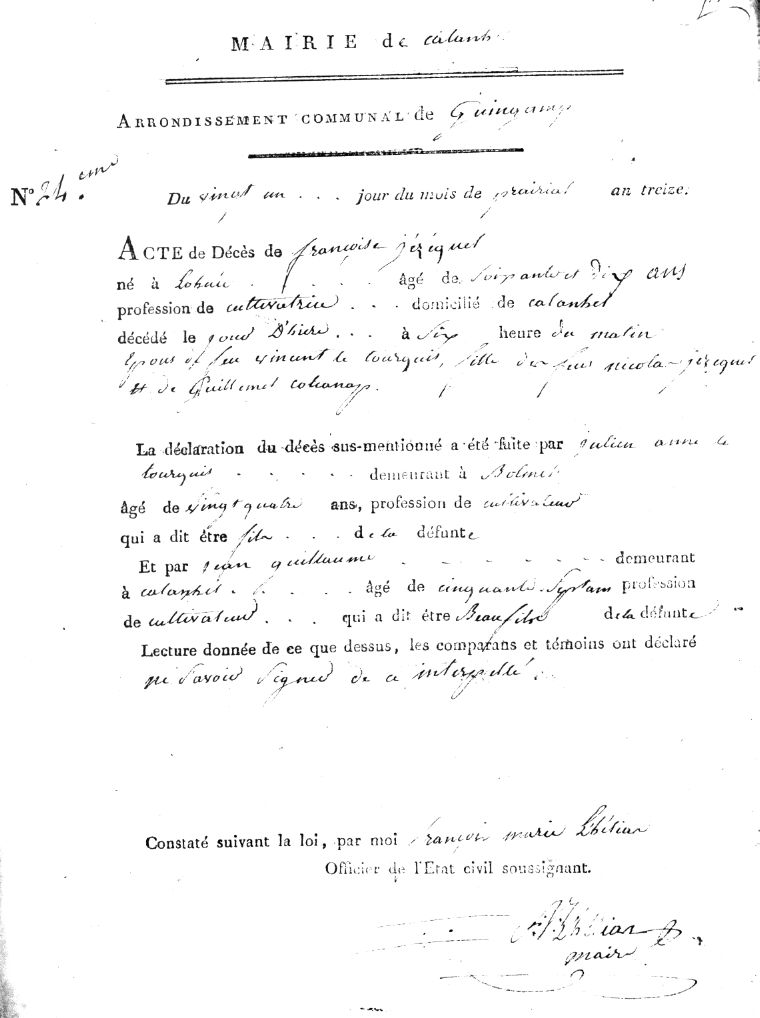 MAIRIE de calanh
ARRONDISSEMENT COMMUNAL de Guingamp
N° 24.eme
Du vingt un . . . jour du mois de prairial an treize.
ACTE de Décès de françoise jézéquel
né à Lohuec . . . . . âgé de soixante et dix ans
profession de cultivatrice . . . domicilié de calanhel
décédé le jour D'hiere . . . à Six heure du matin
Epous de feu vincent le tourquis, fille de feus nicolas jézéquel
et de Guillemet
La déclaration du décès sus-mentionné a été faite par julien anne le
tourquis . . . . . demeurant à
âgé de vingt quatre ans, profession de cultivateur
qui a dit être fils . . . . de la défunte
Et par jean guillaume . . . . . . . demeurant
à calanhel . . . . . âgé de cinquante Sept ans profession
de cultivateur . . . qui a dit être Beau fils de la défunte
Lecture donnée de ce que dessus, les comparans et témoins ont déclaré
ne savoir signer de ce interpellé .
Constaté suivant la loi, par moi françois marie
Officier de l'Etat civil soussignant.
maire